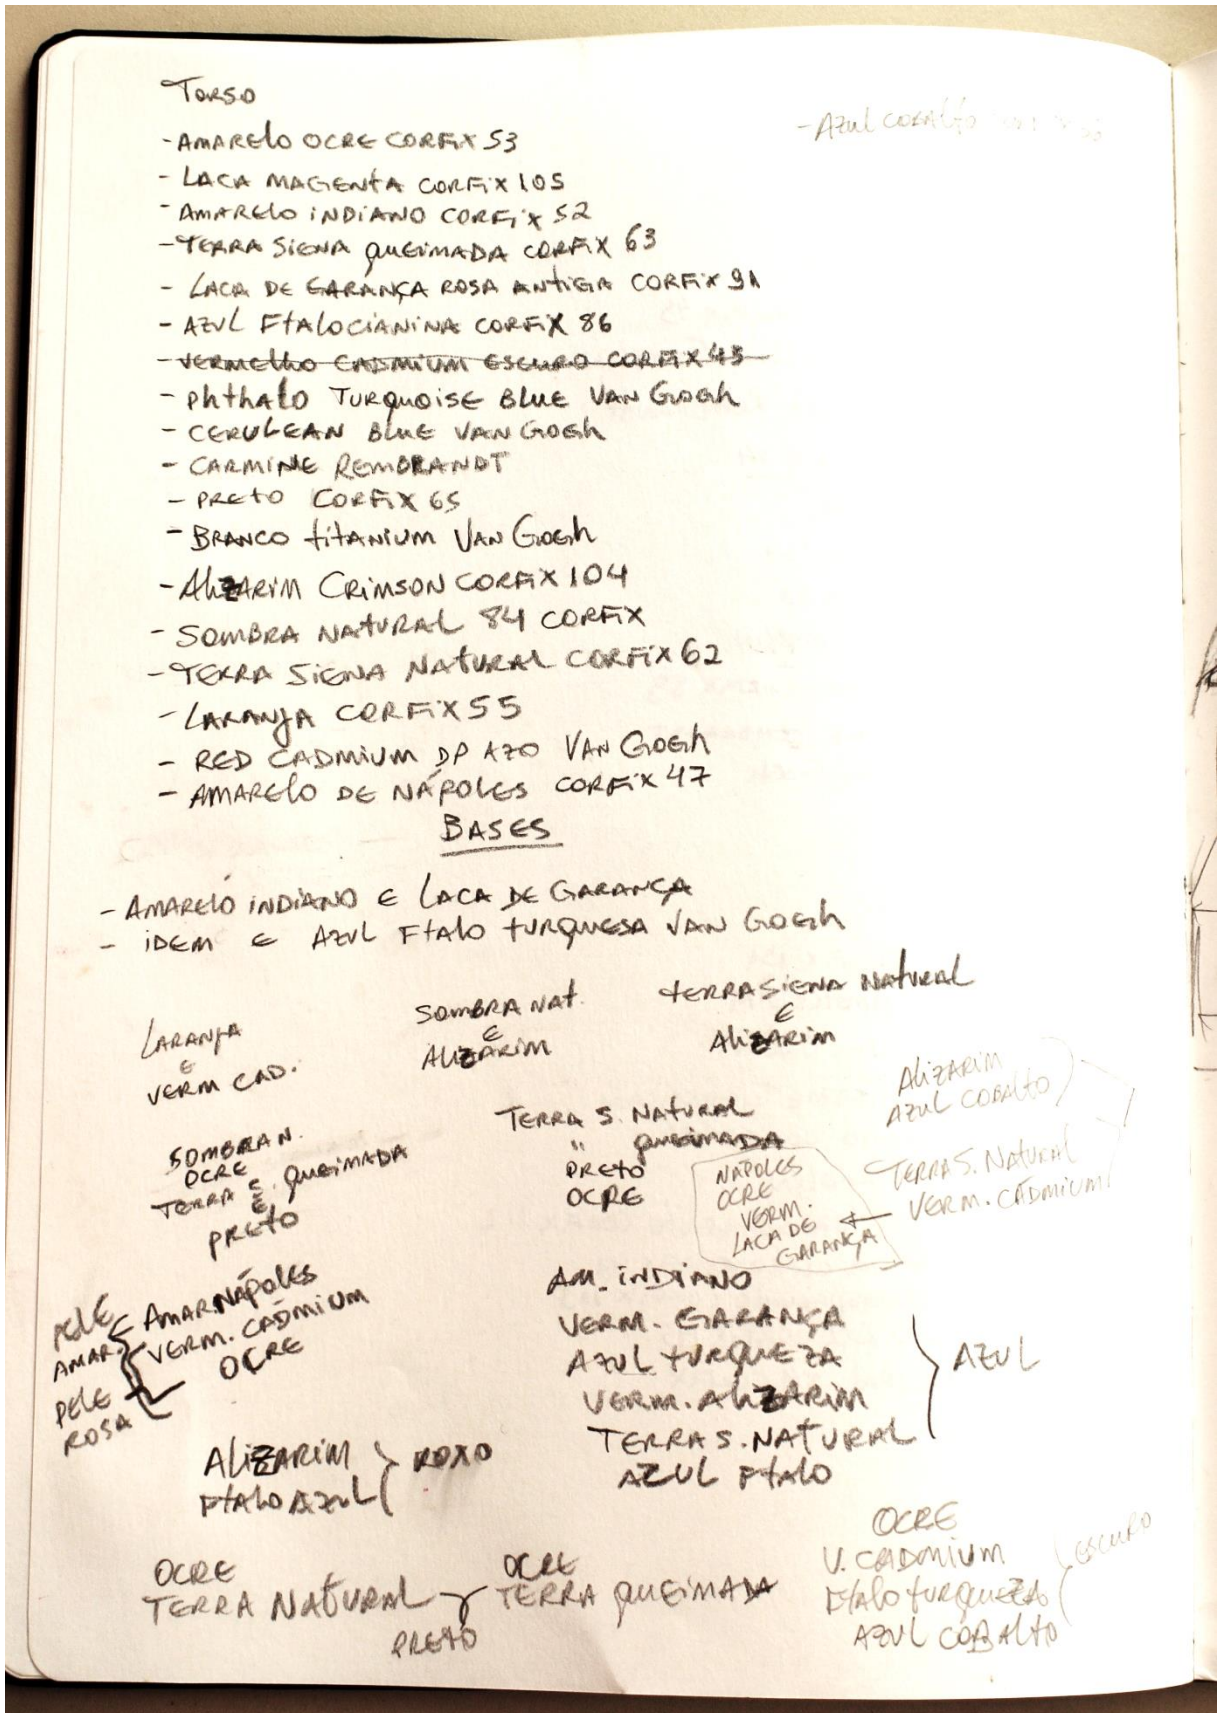 TORSO
- AZUL COBALTO
- AMARELO OCRE CORFIX 53
- LACA MAGENTA CORFIX 105
- AMARELO INDIANO CORFIX 52
- TERRA SIENA QUEIMADA CORFIX 63
- LACA DE GARANÇA ROSA ANTIGA CORFIX 91
- AZUL FTALOCIANINA CORFIX 86
- VERMELHO CADMIUM ESCURO CORFIX 45
- PHTHALO TURQUOISE BLUE VAN GOGH
- CERULEAN BLUE VAN GOGH
- CARMINE REMBRANDT
- PRETO CORFIX 65
- BRANCO TITANIUM VAN GOGH
- ALIZARIM CRIMSON CORFIX 104
- SOMBRA NATURAL 84 CORFIX
- TERRA SIENA NATURAL CORFIX 62
- LARANJA CORFIX 55
- RED CADMIUM DP AZO VAN GOGH
- AMARELO DE NÁPOLES CORFIX 47
BASES
- AMARELO INDIANO E LACA DE GARANÇA
- IDEM E AZUL FTALO TURQUESA VAN GOGH
LARANJA
E
VERM CAD.
SOMBRA NAT.
E
ALIZARIM
TERRA SIENA NATURAL
E
ALIZARIM
ALIZARIM
AZUL COBALTO
SOMBRA N.
OCRE
TERRA S. QUEIMADA
E
PRETO
TERRA S. NATURAL
" QUEIMADA
PRETO
OCRE
NAPOLES
OCRE
VERM.
LACA DE
GARANÇA
TERRA S. NATURAL
VERM. CADMIUM
PELE
AMAR.
PELE
ROSA
AMAR. NÁPOLES
VERM. CADMIUM
OCRE
AM. INDIANO
VERM. GARANÇA
AZUL TURQUEZA
VERM. ALIZARIM
TERRA S. NATURAL
AZUL FTALO
AZUL
ALIZARIM
FTALO AZUL
ROXO
OCRE
TERRA NATURAL
OCRE
TERRA QUEIMADA
PRETO
OCRE
V. CADMIUM
FTALO TURQUEZA
AZUL COBALTO
ESCURO